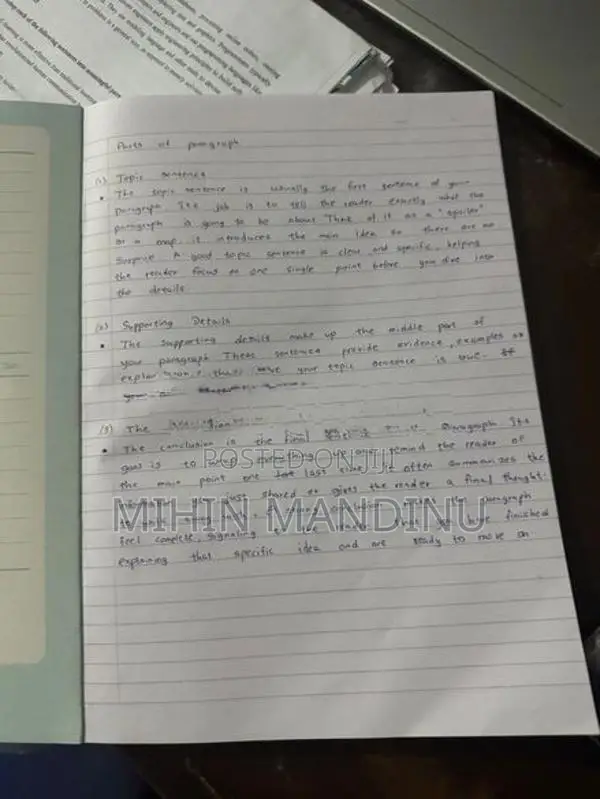 Parts of paragraph
(1) Topic sentence
• The topic sentence is usually the first sentence of your
paragraph Its job is to tell the reader exactly what the
paragraph is going to be about Think of it as a "spoiler"
or a map. it introduces the main idea so there are no
A good topic sentence is clear and specific, helping
the reader focus on one single point before you dive into
the details
(2) Supporting Details
• The supporting details make up the middle part of
your paragraph These sentence provide evidence, examples or
that your topic sentence is true.
(3) The
• The conclusion is the final paragraph Its
goal is to wrap everything up and remind the reader of
the main point one last time. It often summarizes the
you just shared or gives the reader a final thought
the paragraph
feel complete, signaling finished
explaining that specific idea and are ready to move on
POSTED ON JIJI
MIHIN MANDINU